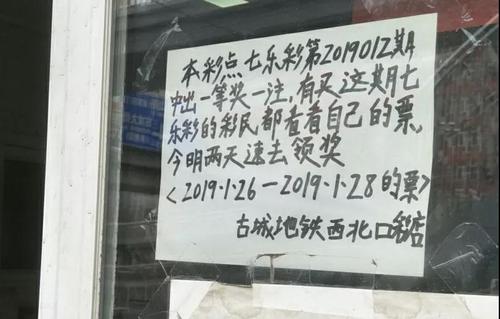 本彩点七乐彩第2019012期
中出一等奖一注,有买这期七
乐彩的彩民都查看自己的票,
今明两天速去领奖
<2019.1.26—2019.1.28的票>
古城地铁西北口彩店